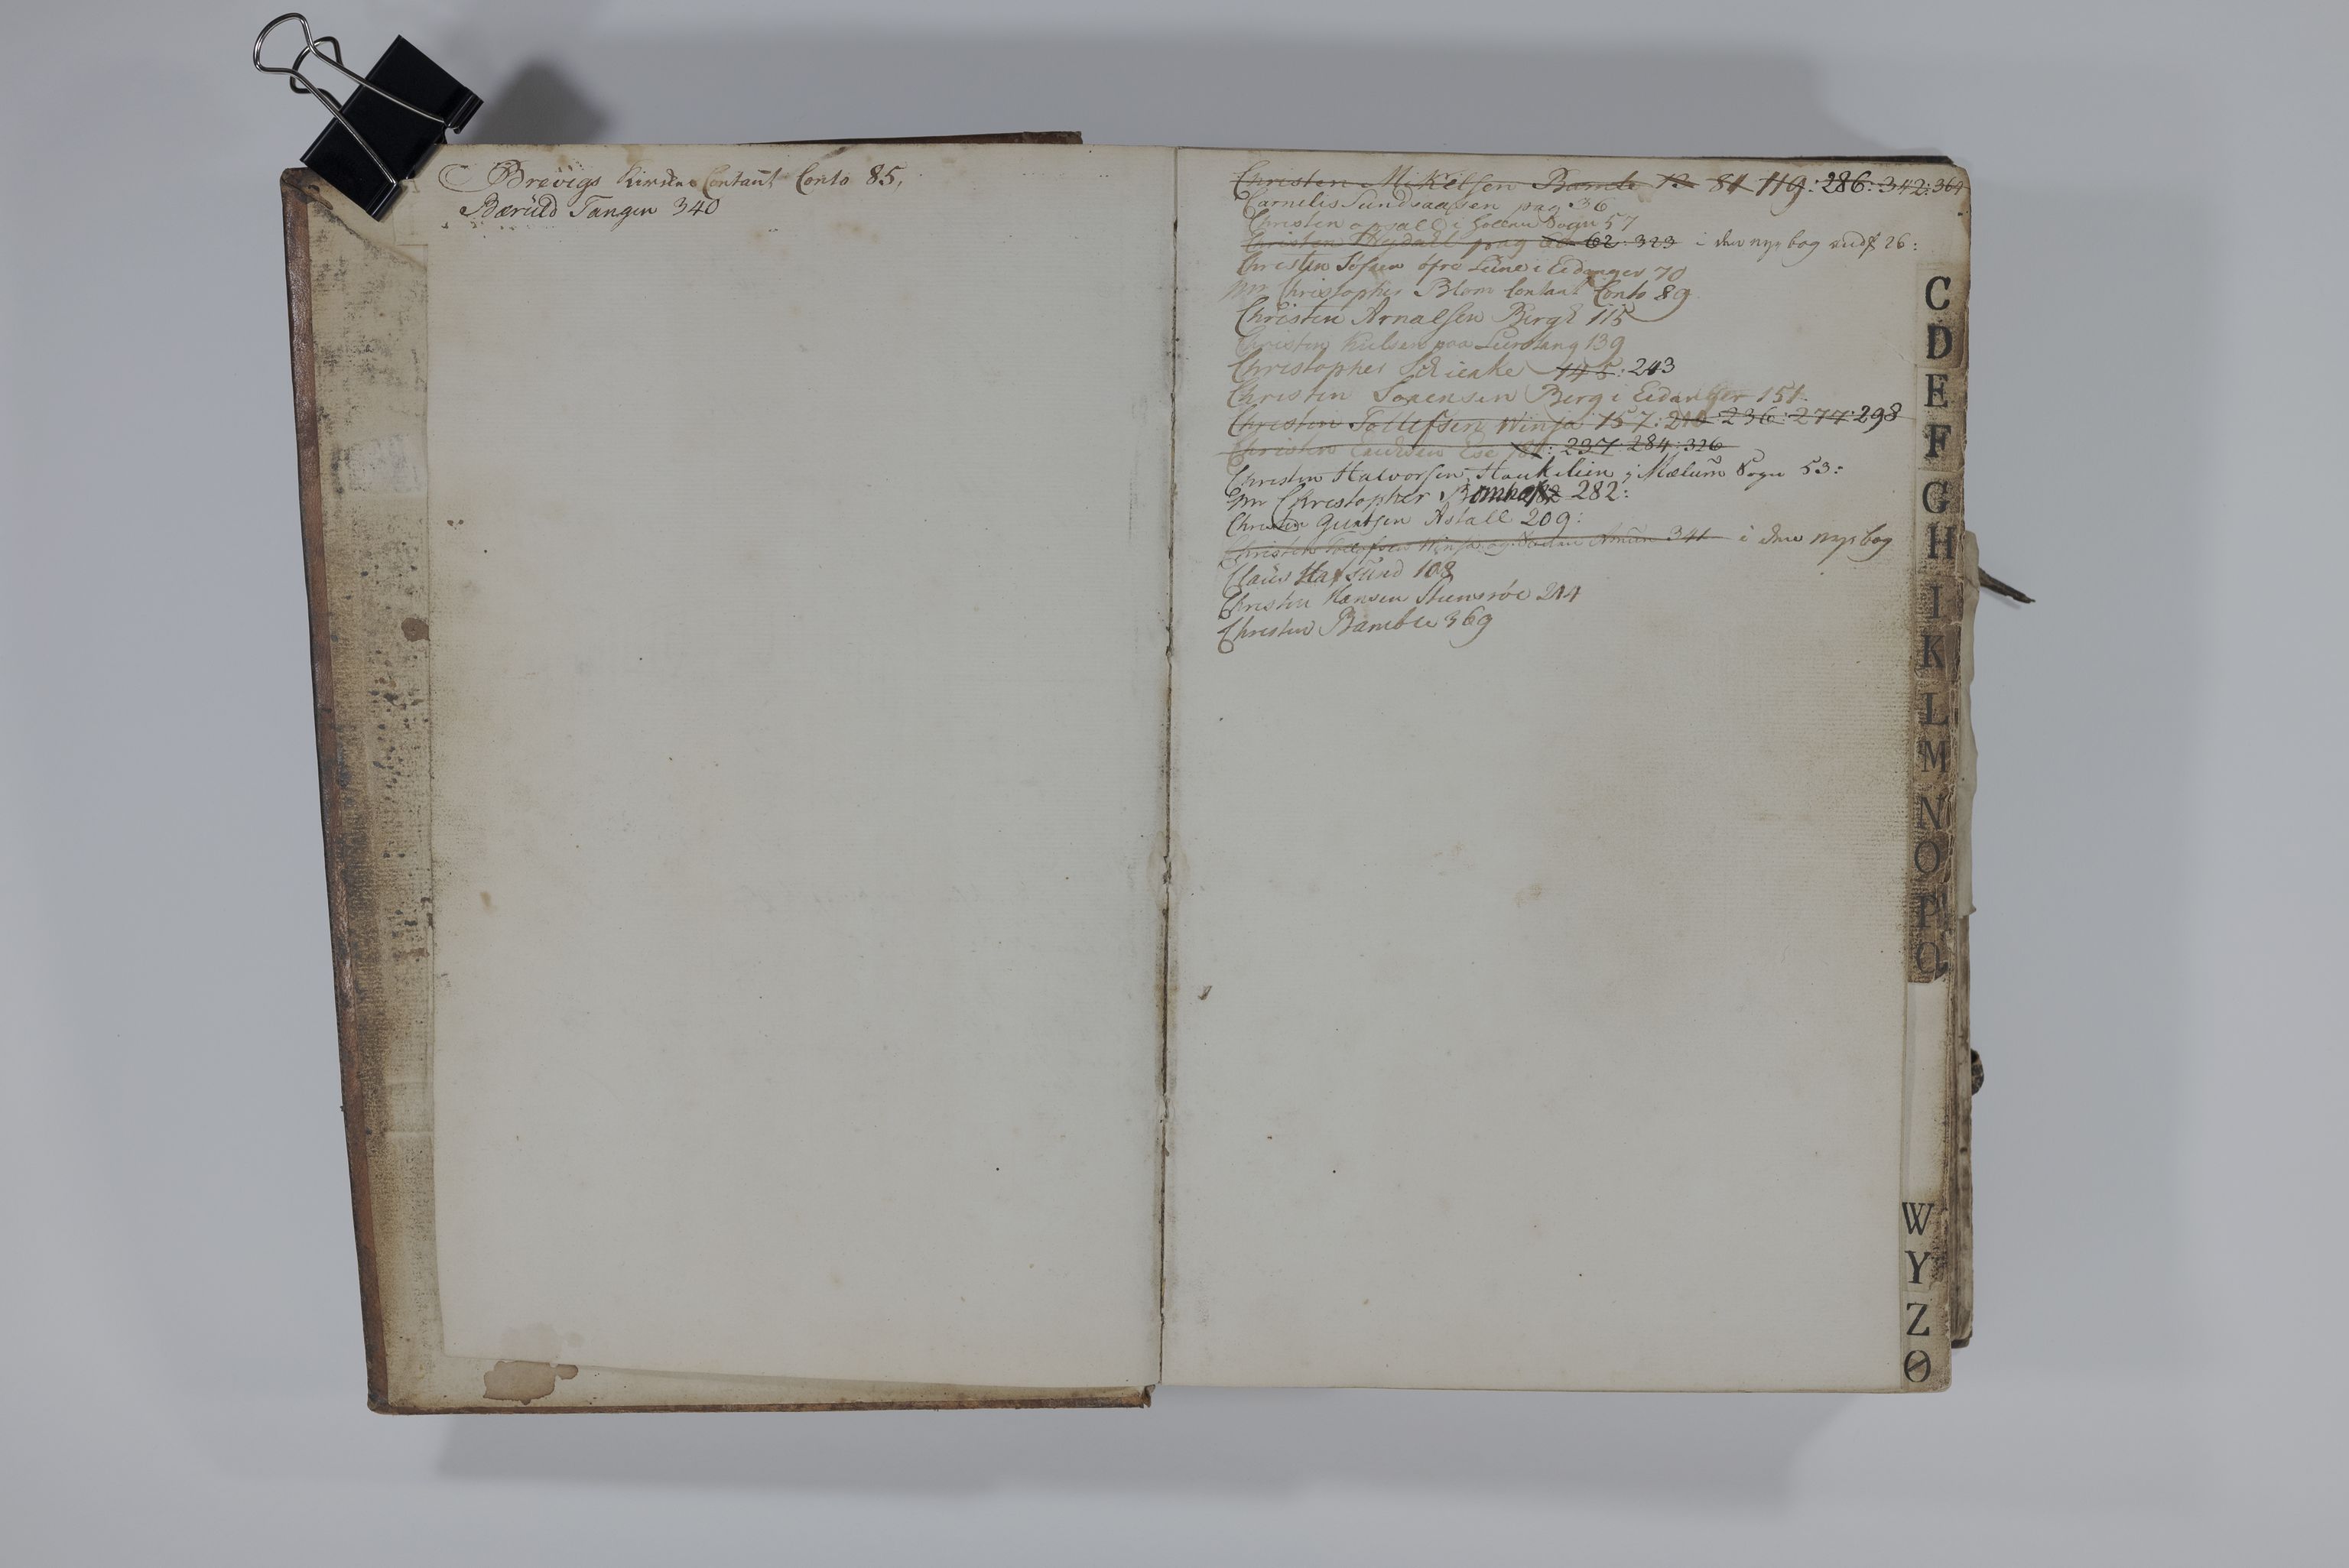 Brevigs Kirkes Contant Conto 85,
Bæruld Tangen 340
Christen Mikelsen Bamle 12 81 119: 286: 342: 364
Carnelis Sundsaasen pag 36
Christen opsall i Sollum Sogn 57
Christen Heydall pag 62: 323 i den nye bog 26:
Christen Jossen öfre Lüne i Eidanger 70
Mr Christopher Blom Contant Conto 89
Christen Arnalsen Berge 115
Christen Nielsen paa 139
Christopher 145: 243
Christen Sorensen Berg i Eidanger 151
Christen Tollefsen Winja 157: 210 236: 274: 298
Christen Ese 237: 284: 326
Christen Halvorsen Haukelien i Mælum Sogn 53:
Mr Christopher 282:
Christen Guntsen Aslall 209:
Christen Tollefsen Winja og 341 i den nye bog
Claüs Hafsünd 108
Christen Hansen Steensröe 214
Christen Bamble 369
C
D
E
F
G
H
I
K
L
M
N
O
P
Q
W
Y
Z
Ø